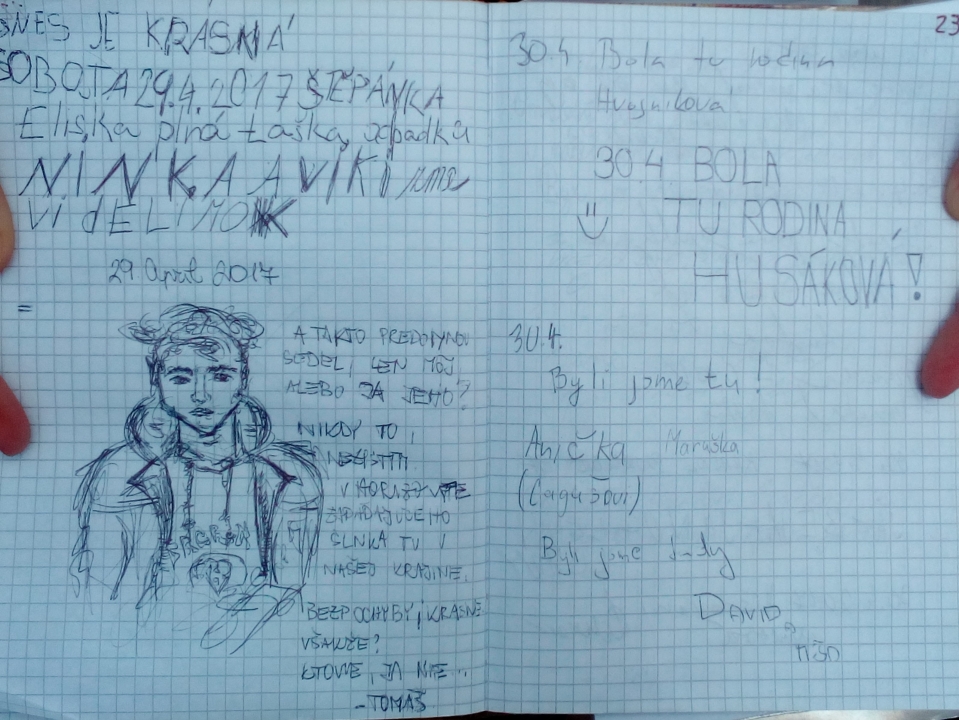 DNES JE KRÁSNÁ
SOBOTA 29.4.2017 ŠTĚPÁNKA
Eliška plná taška odpadků
NINKA A VIKI jsme
ViděLi MO
29. April 2017
=
A TAKTO PREDOMNOU
SEDEL, LEN MÔJ,
ALEBO JA JEHO?
NIKDY TO
NEZISTÍM
V HORIZONTE
ZAPADAJÚCEHO
SLNKA TU V
NAŠEJ KRAJINE.
BEZPOCHYBY, KRÁSNE
VŠAKŽE?
KTOVIE, JA NIE...
-TOMÁŠ
23
30.4. Bola tu rodina
30.4 BOLA
TU RODINA
HUSÁKOVÁ!
30.4.
Byli jsme tu!
Anička Maruška
Byli jsme tady
DAVID,
MÍŠO